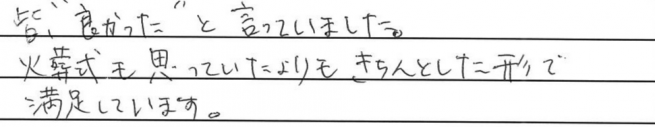 皆、“良かった”と言っていました。
火葬式も思っていたよりもきちんとした形で
満足しています。